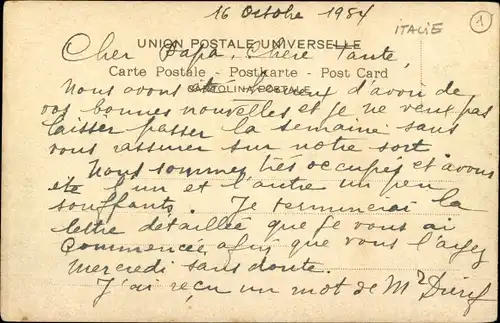 16 Octobre 1954
ITALIE
1
UNION POSTALE UNIVERSELLE
Cher Papa, Chère Tante,
Carte Postale - Postkarte - Post Card
CARTOLINA POSTALE
Nous avons été heureux d'avoir de
vos bonnes nouvelles et je ne veux pas
laisser passer la semaine sans
vous rassurer sur notre sort.
Nous sommes très occupés et avons
été l'un et l'autre un peu
souffants. Je terminerai la
lettre détaillée que je vous ai
commencée, afin que vous l'ayez
mercredi sans doute.
J'ai reçu un mot de